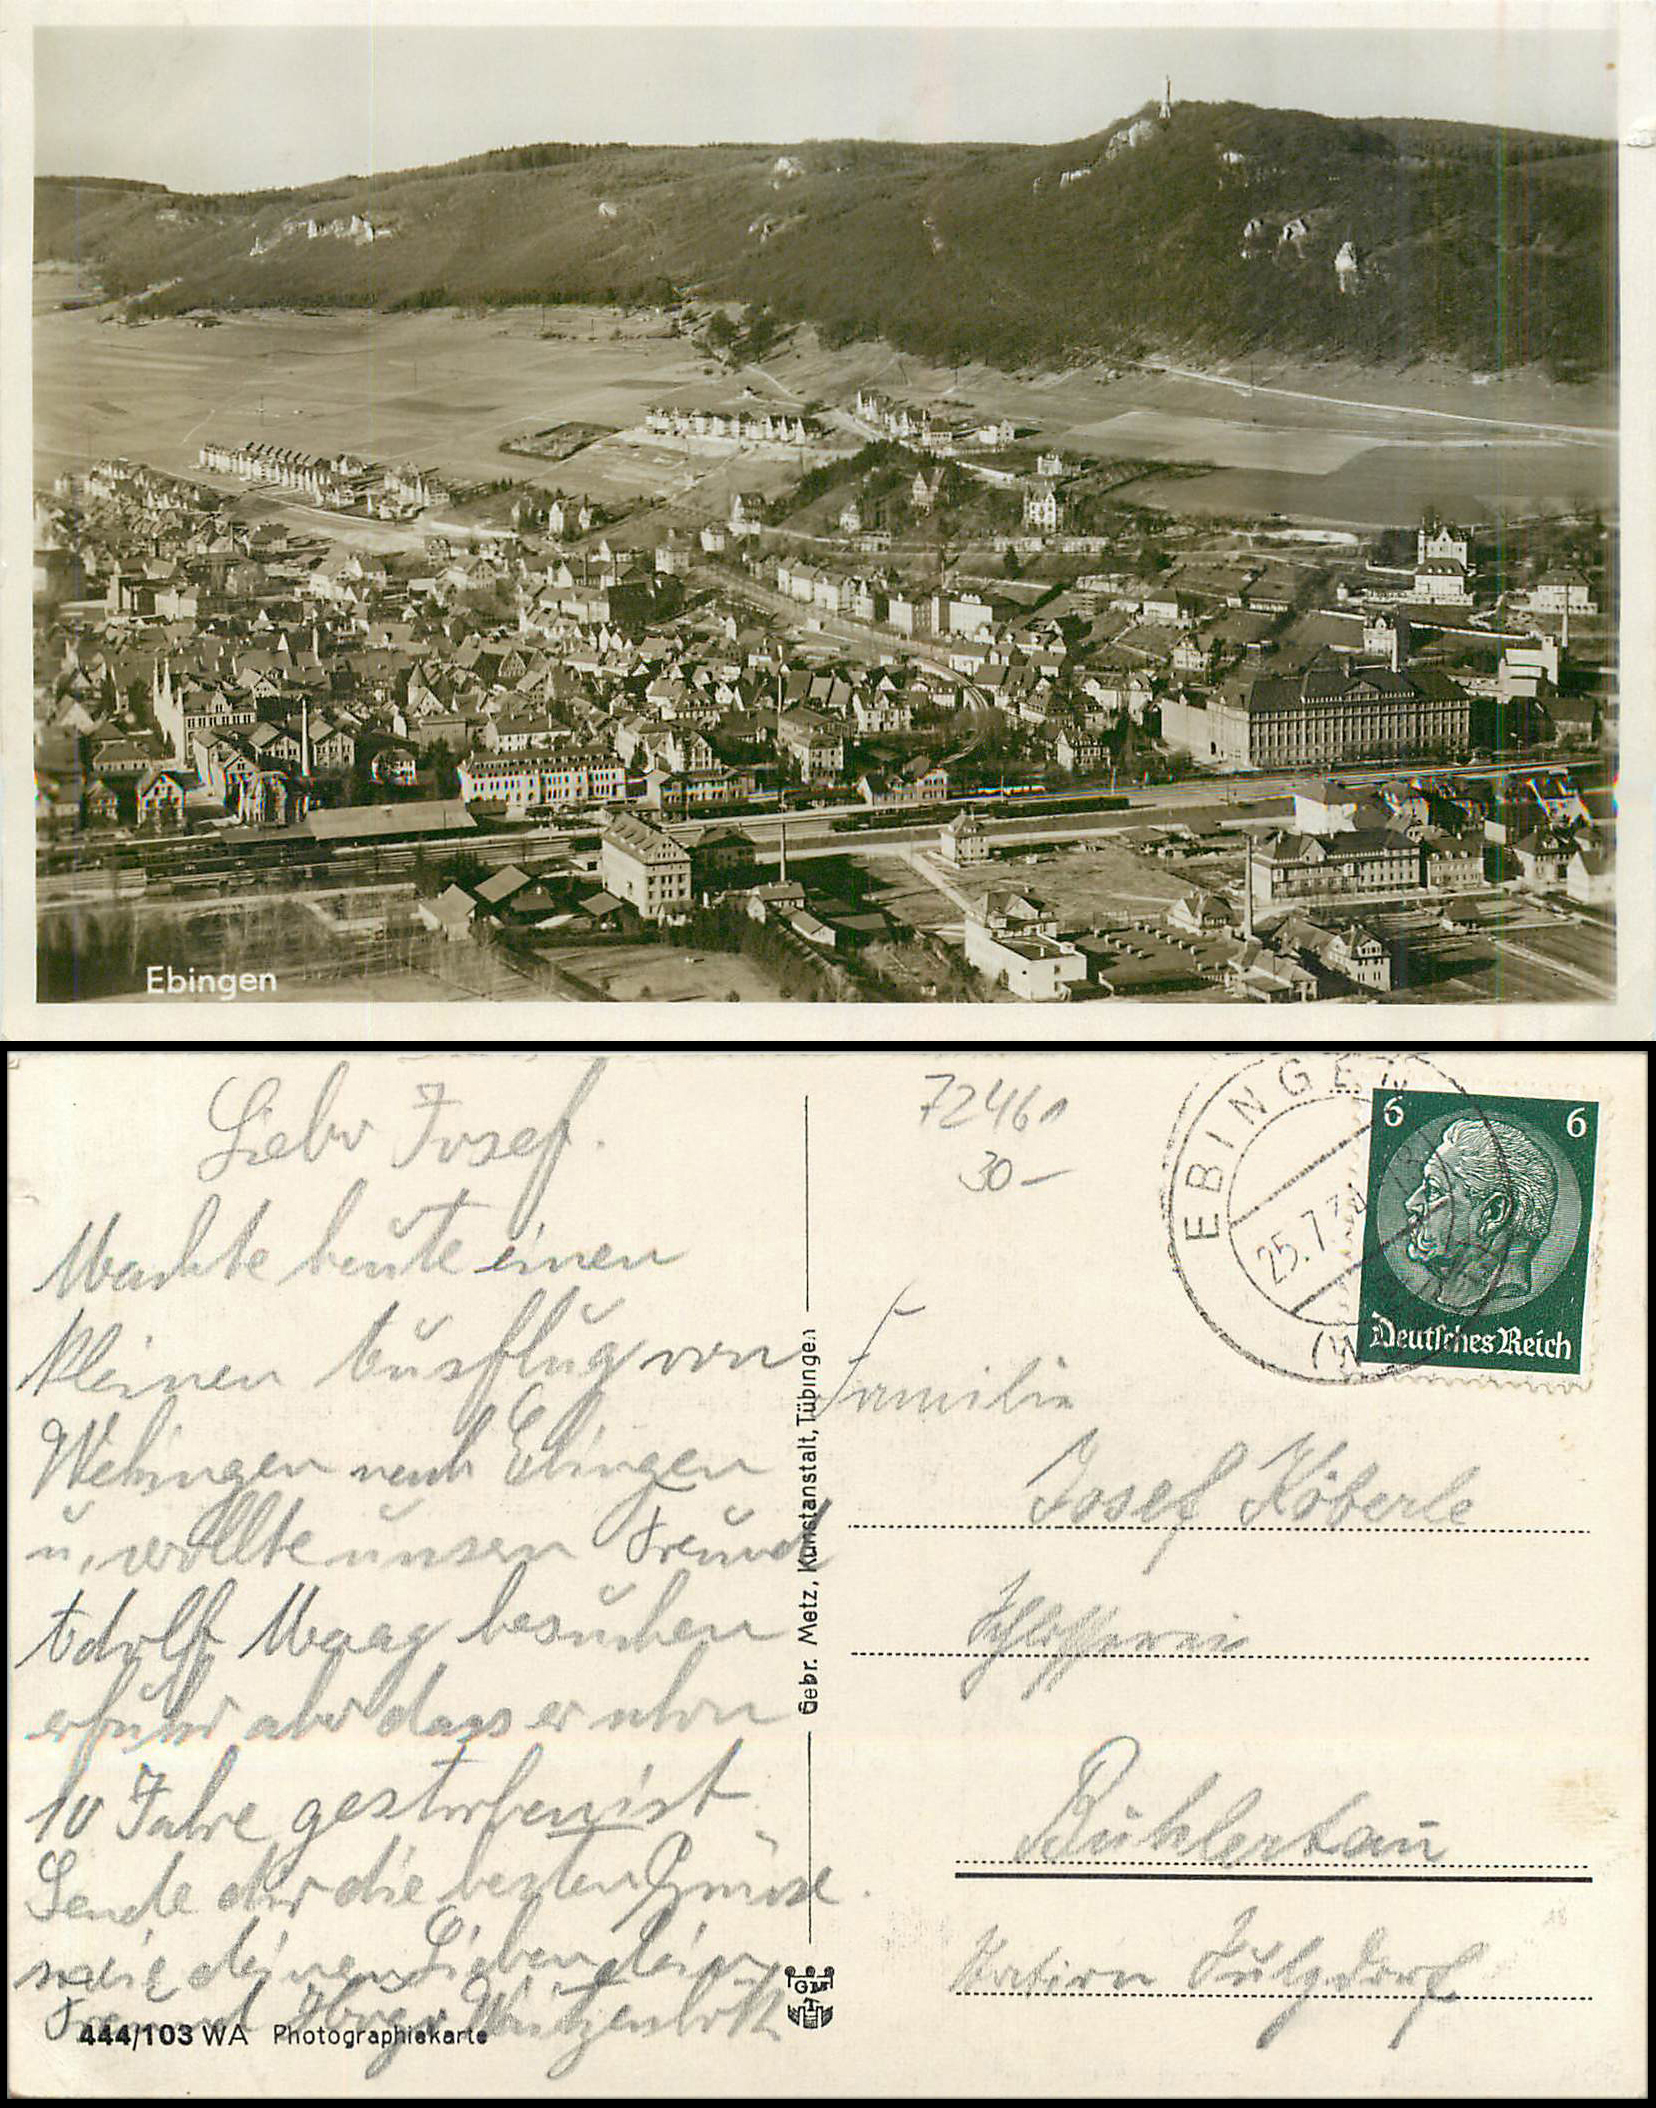 Ebingen
Lieber Josef.
Machte heute einen
kleinen Ausflug von
Wehingen nach Ebingen
u. wollte unsern Freund
Adolf Maag besuchen
erfuhr aber dass er schon
10 Jahre gestorben ist
Sende dir die besten Grüsse
sowie deinen Lieben dein
Freund
444/103 WA Photographiekarte
Gebr. Metz, Kunstanstalt, Tübingen
GMT
72461
30—
EBINGEN
25.7.
(W
6 6
Deutsches Reich
Familie
Josef Köberle
Schlosserei
Bühlertann
Station Sulzdorf